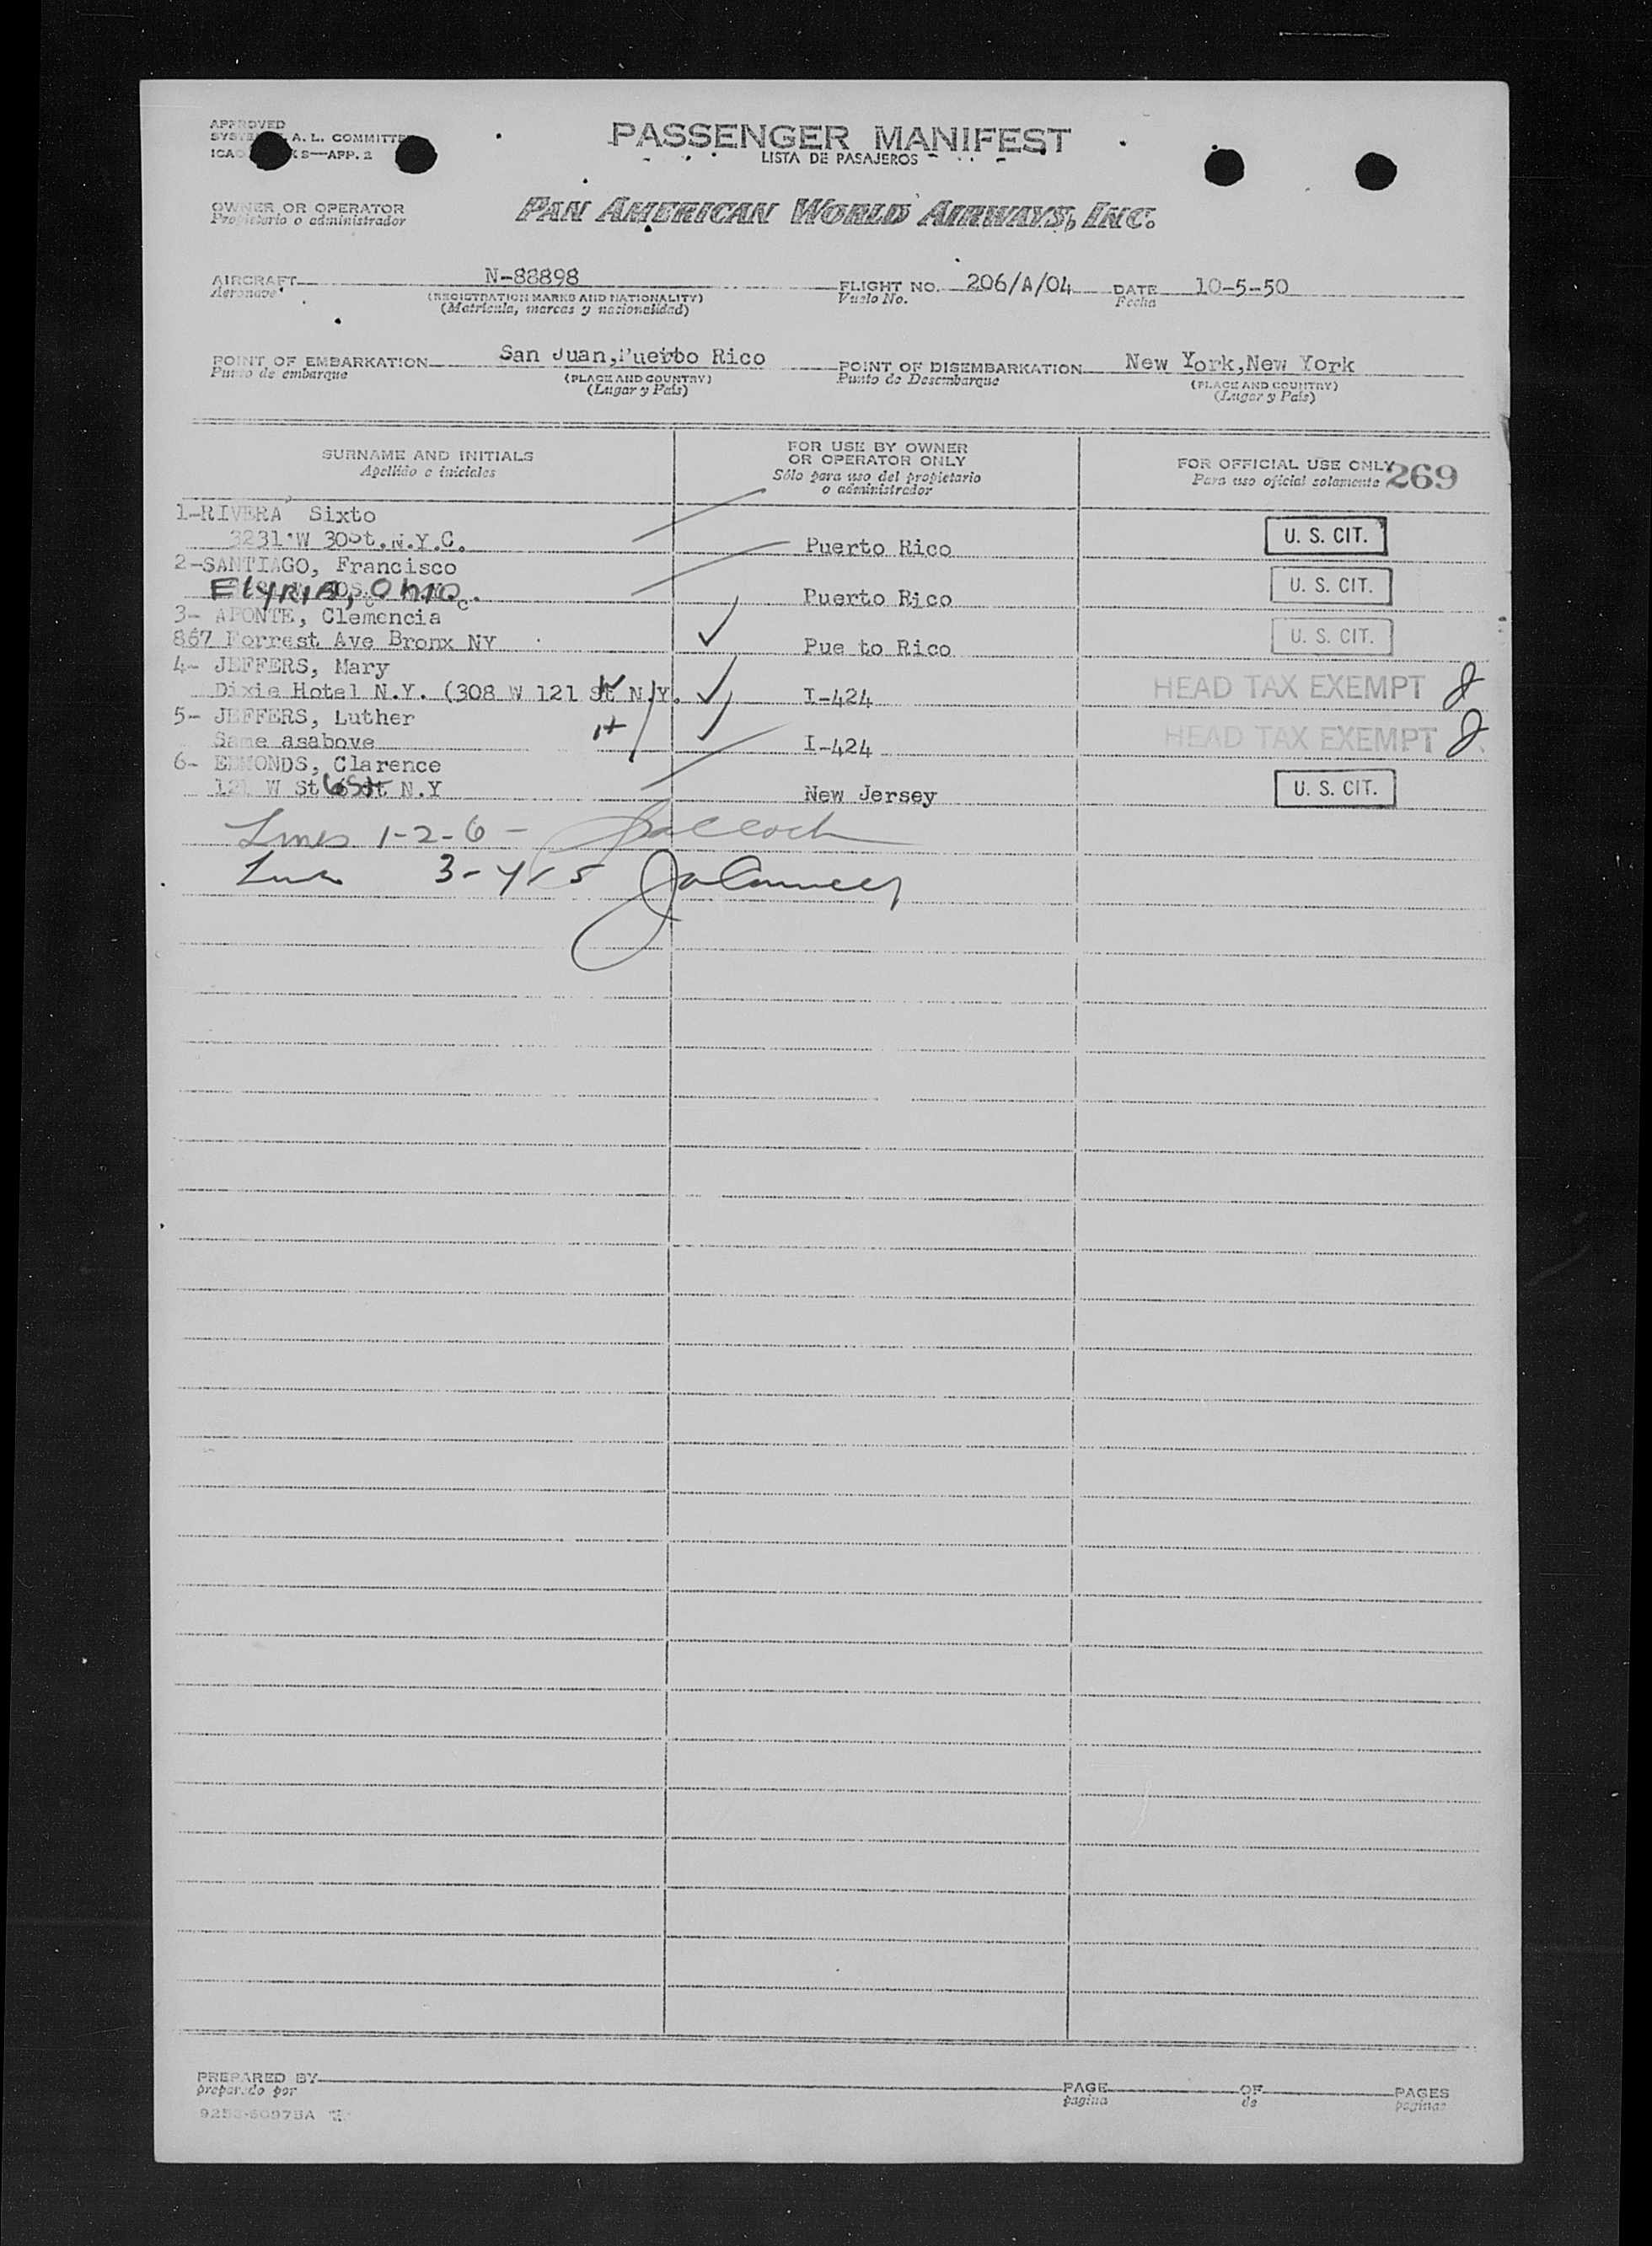 APPROVED
A. L. COMMITTEE
ICAO S—APP. 2
PASSENGER MANIFEST
LISTA DE PASAJEROS
OWNER OR OPERATOR
Propietario o administrador
PAN AMERICAN WORLD AIRWAYS, INC.
AIRCRAFT N-88898 FLIGHT NO. 206/A/04 DATE 10-5-50
Aeronave (REGISTRATION MARKS AND NATIONALITY) Vuelo No. Fecha
(Matrícula, marcas y nacionalidad)
POINT OF EMBARKATION San Juan, Puerto Rico POINT OF DISEMBARKATION New York, New York
Punto de embarque (PLACE AND COUNTRY) Punto de Desembarque (PLACE AND COUNTRY)
(Lugar y País) (Lugar y País)
SURNAME AND INITIALS FOR USE BY OWNER OR OPERATOR ONLY FOR OFFICIAL USE ONLY 269
Apellido e iniciales Sólo para uso del propietario o administrador Para uso oficial solamente
1-RIVERA Sixto
3231 W 30st.N.Y.C. Puerto Rico U. S. CIT.
2-SANTIAGO, Francisco
Elyria, Ohio. Puerto Rico U. S. CIT.
3- APONTE, Clemencia
867 Forrest Ave Bronx NY Pue to Rico U. S. CIT.
4- JEFFERS, Mary
Dixie Hotel N.Y. (308 W 121 St N.Y. I-424 HEAD TAX EXEMPT
5- JEFFERS, Luther
Same asabove I-424 HEAD TAX EXEMPT
6- EDMONDS, Clarence
121 W St N.Y New Jersey U. S. CIT.
Lines 1-2-6-
3-4
PREPARED BY PAGE OF PAGES
preparado por página de páginas